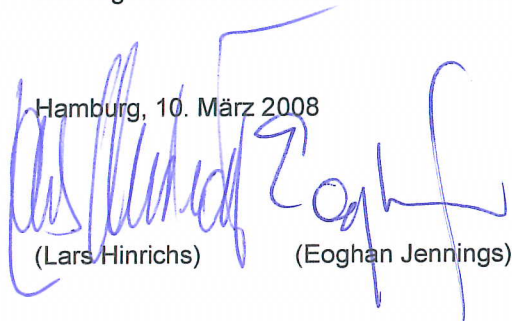 Hamburg, 10. März 2008
(Lars Hinrichs) (Eoghan Jennings)